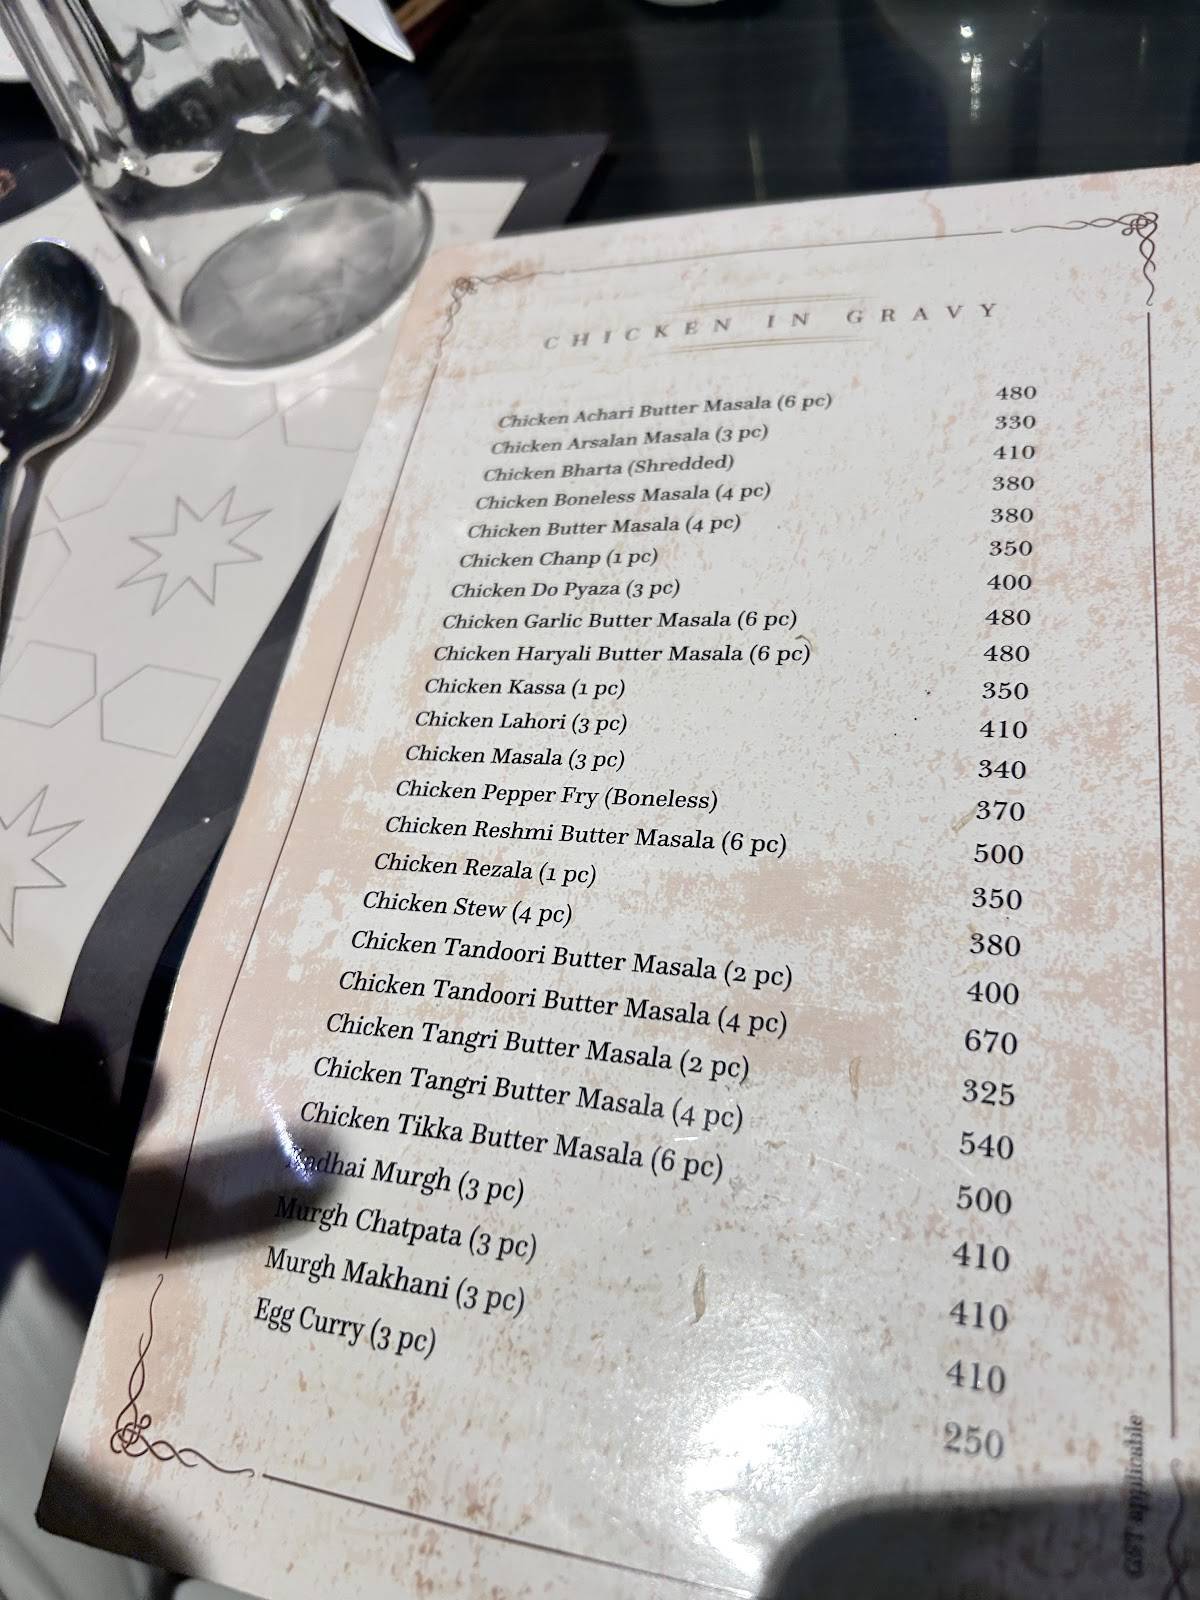 CHICKEN IN GRAVY
Chicken Achari Butter Masala (6 pc) 480
Chicken Arsalan Masala (3 pc) 330
Chicken Bharta (Shredded) 410
Chicken Boneless Masala (4 pc) 380
Chicken Butter Masala (4 pc) 380
Chicken Chanp (1 pc) 350
Chicken Do Pyaza (3 pc) 400
Chicken Garlic Butter Masala (6 pc) 480
Chicken Haryali Butter Masala (6 pc) 480
Chicken Kassa (1 pc) 350
Chicken Lahori (3 pc) 410
Chicken Masala (3 pc) 340
Chicken Pepper Fry (Boneless) 370
Chicken Reshmi Butter Masala (6 pc) 500
Chicken Rezala (1 pc) 350
Chicken Stew (4 pc) 380
Chicken Tandoori Butter Masala (2 pc) 400
Chicken Tandoori Butter Masala (4 pc) 670
Chicken Tangri Butter Masala (2 pc) 325
Chicken Tangri Butter Masala (4 pc) 540
Chicken Tikka Butter Masala (6 pc) 500
Kadhai Murgh (3 pc) 410
Murgh Chatpata (3 pc) 410
Murgh Makhani (3 pc) 410
Egg Curry (3 pc) 250
GST applicable